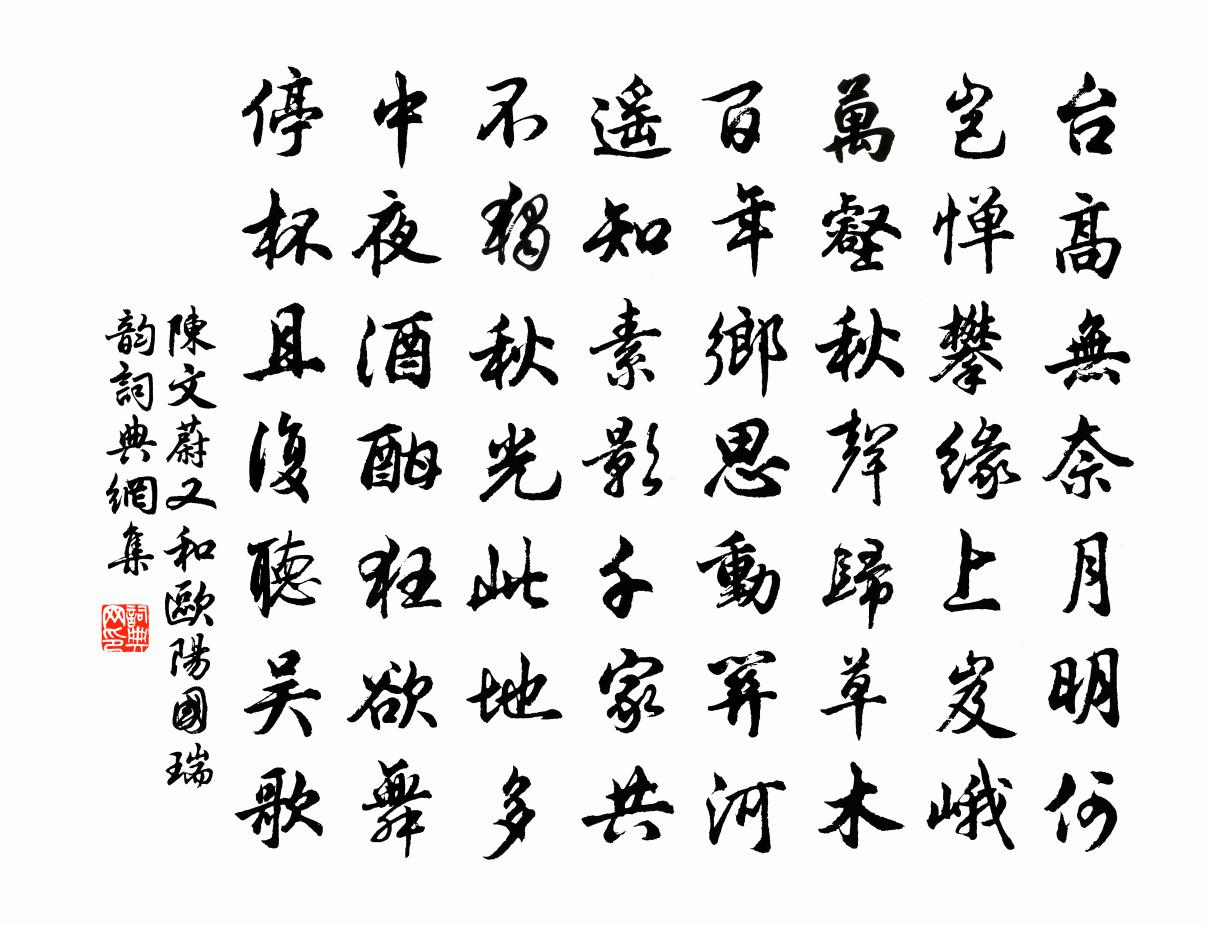 台高無奈月明何
豈憚攀緣上岌峨
萬壑秋聲歸草木
百年鄉思動關河
遥知素影千家共
不獨秋光此地多
中夜酒酣狂欲舞
停杯且復聽吴歌
陳文蔚又和歐陽國瑞
韵詞典網集
詞典网印